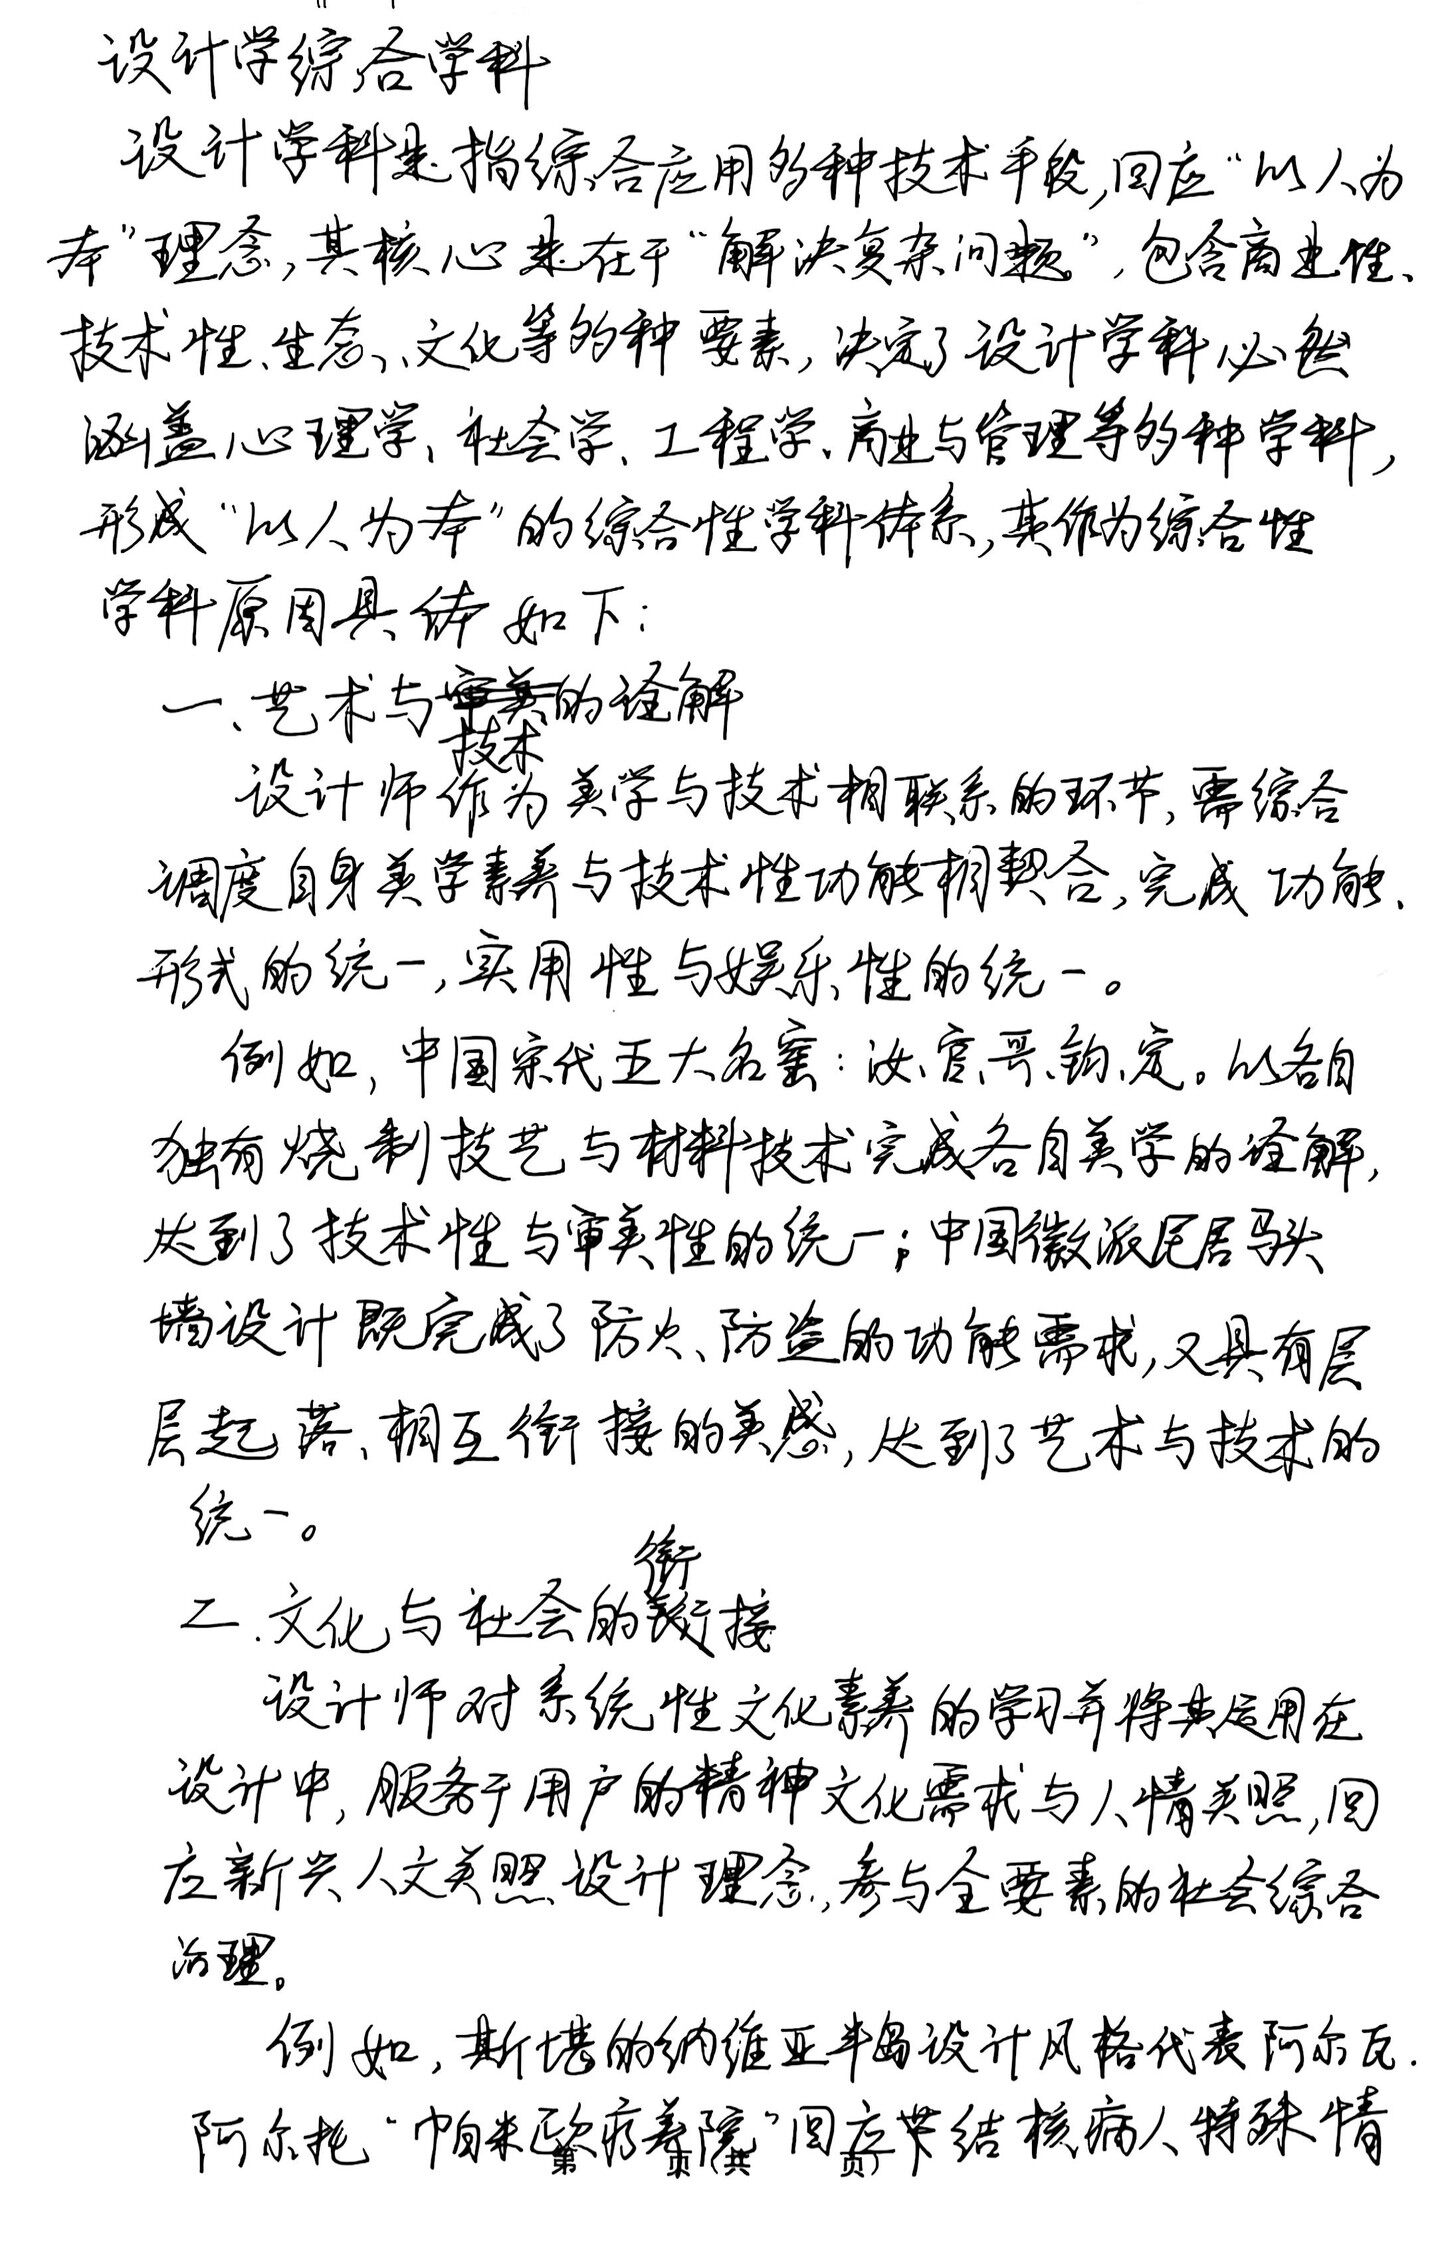 设计学综合学科
设计学科是指综合应用多种技术手段,回应“以人为
本”理念,其核心是在于“解决复杂问题”,包含商业性、
技术性、生态、文化等多种要素,决定了设计学科必然
涵盖心理学、社会学、工程学、商业与管理等多种学科,
形成“以人为本”的综合性学科体系,其作为综合性
学科原因具体如下:
一、艺术与审美的诠解
技术
设计师作为美学与技术相联系的环节,需综合
调度自身美学素养与技术性功能相契合,完成功能、
形式的统一,实用性与娱乐性的统一。
例如,中国宋代五大名窑:汝、官、哥、钧、定。以各自
独有烧制技艺与材料技术完成各自美学的诠解,
达到了技术性与审美性的统一;中国徽派民居马头
墙设计既完成了防火、防盗的功能需求,又具有层
层起落、相互衔接的美感,达到了艺术与技术的
统一。
衔
二.文化与社会的接
设计师对系统性文化素养的学习并将其运用在
设计中,服务于用户的精神文化需求与人情关照,回
应新兴人文关照设计理念,参与全要素的社会综合
治理。
例如,斯堪的纳维亚半岛设计风格代表阿尔瓦.
阿尔托“帕米欧疗养院”回应肺结核病人特殊情
第 页(共 页)